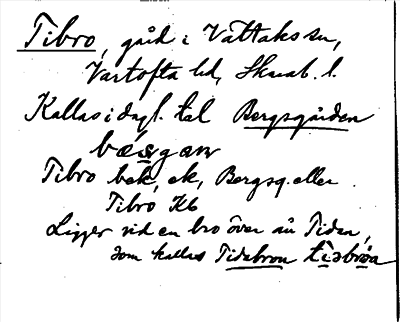 Tibro, gård i Vättaks sn,
Vartofta hd, Skarab. l.
Kallas i dagl. tal Bergsgården
bæsgan
Tibro bek, ek, Bergsg. eller
Tibro Kb
Ligger vid en bro över ån Tidan,
som kallas Tidabron tisbrøa